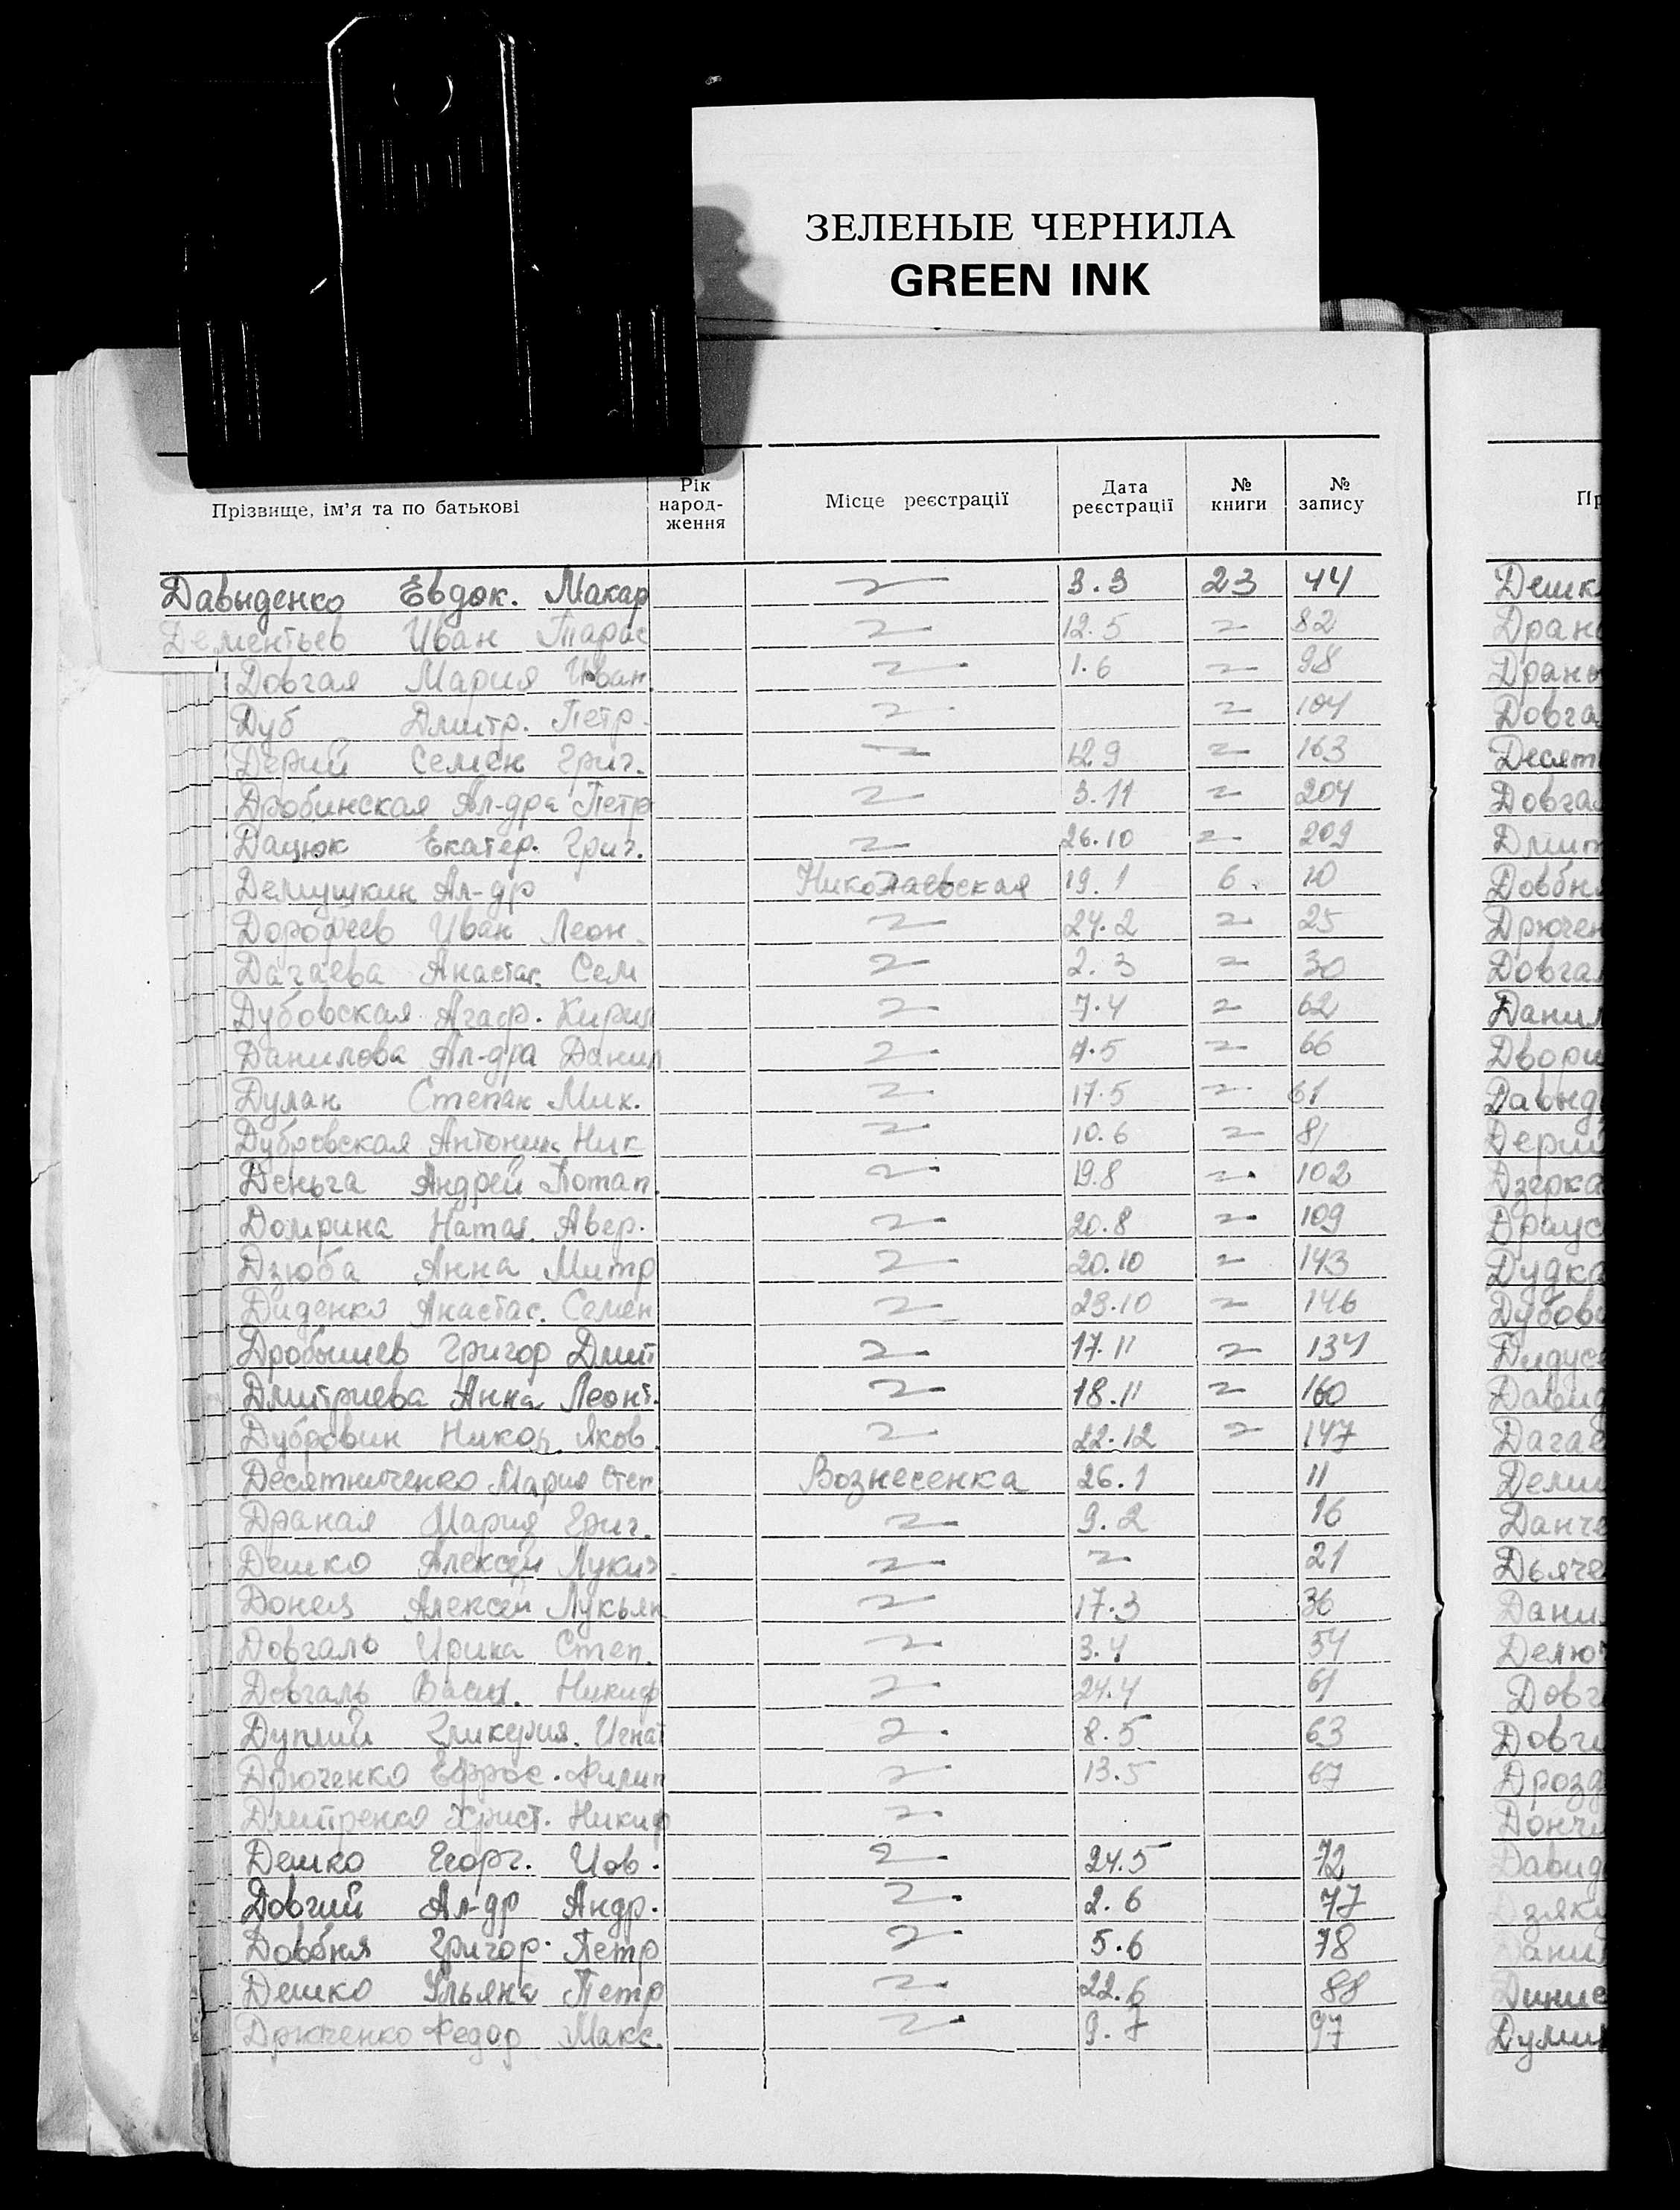 ЗЕЛЕНЫЕ ЧЕРНИЛА
GREEN INK
Прізвище, ім'я та по батькові
Рік народ- ження
Місце реєстрації
Дата реєстрації
№ книги
№ запису
Давыденко Евдок. Макар 3.3 23 44
Дементьев Иван Тарас 12.5 82
Довгая Мария Иван. 1.6 98
Дуб Дмитр. Петр. 104
Дерий Семен Григ. 12.9 163
Дробинская Ал-дра Петр 3.11 204
Дацюк Екатер. Григ. 26.10 209
Демушкин Ал-др Николаевская 19.1 6 10
Дорофеев Иван Леон. 24.2 25
Дагаева Анастас. Сем 2.3 30
Дубовская Агаф. Кирил 7.4 62
Данилова Ал-дра Данил 7.5 66
Дулан Степан Мих. 17.5 61
Дубровская Антонин. Ник 10.6 81
Деньга Андрей Потап. 19.8 102
Домрина Натал. Авер. 20.8 109
Дзюба Анна Митр 20.10 143
Диденко Анастас. Семен 23.10 146
Дробышев Григор Дмит 17.11 134
Дмитриева Анна Леонт. 18.11 160
Дубровин Никол. Яков. 22.12 147
Десятниченко Мария Степ Вознесенка 26.1 11
Драная Мария Григ. 9.2 16
Дешко Алексей 21
Донец Алексей Лукьян 17.3 36
Довгаль Ирина Степ. 3.4 54
Довгаль Васил. Никиф 24.4 61
Дуплий Гликерия. Игнат 8.5 63
Дрюченко Ефрос. Филип 13.5 67
Дмитренко Христ. Никиф
Дешко Георг. Иов. 24.5 72
Довгий Ал-др Андр. 2.6 77
Довбня Григор. Петр 5.6 78
Дешко Ульяна Петр 22.6 88
Дрюченко Федор Макс. 9.7 97